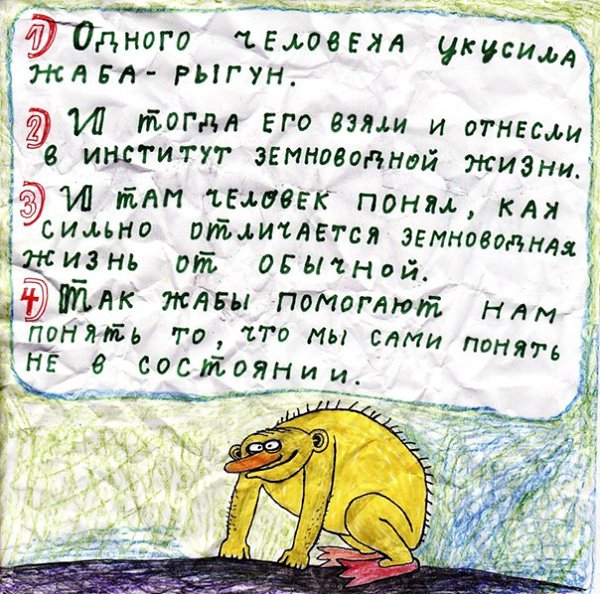 1) Одного человека укусила
жаба-рыгун.
2) И тогда его взяли и отнесли
в институт земноводной жизни.
3) И там человек понял, как
сильно отличается земноводная
жизнь от обычной.
4) Так жабы помогают нам
понять то, что мы сами понять
не в состоянии.